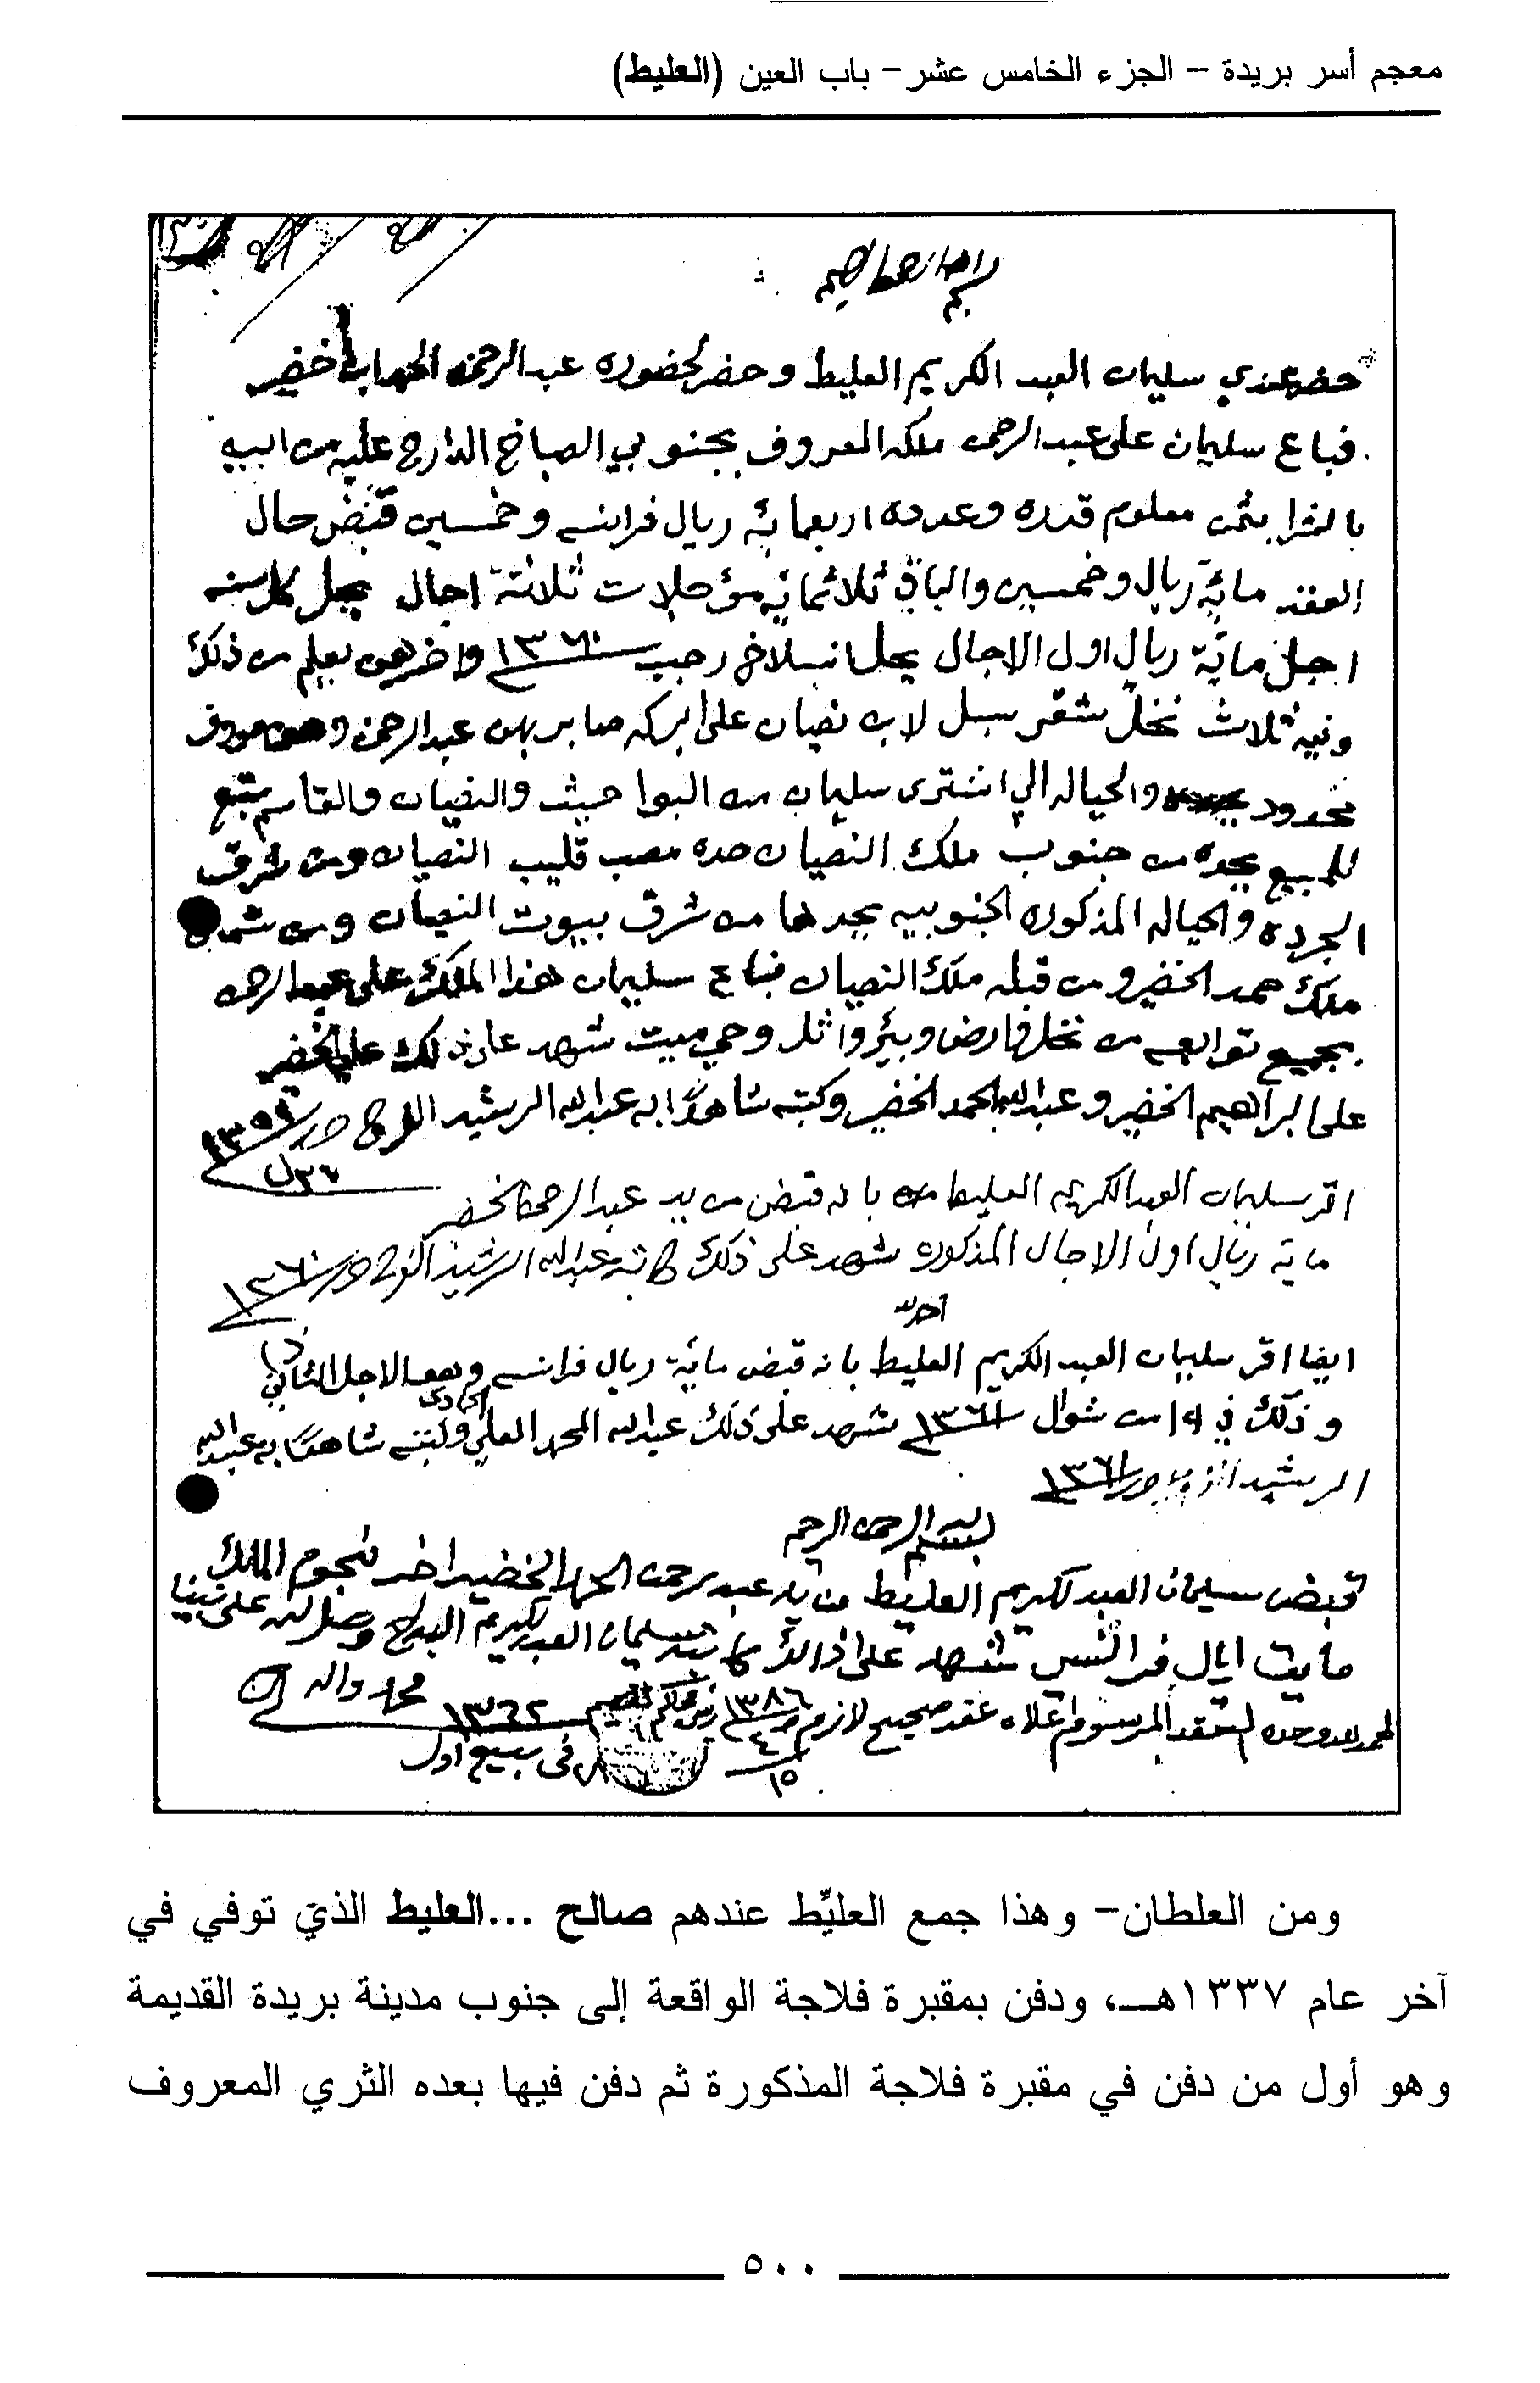 معجم أسر بريدة – الجزء الخامس عشر – باب العين (العليط)
حضر عندي سليمان العبد الكريم العليط وحضر لحضوره عبدالرحمن الحمد خضير
فباع سليمان على عبدالرحمن ملكه المعروف بجنوبي الصباخ الدارج عليه من ابيه
بالشرا بثمن معلوم قدره وعدده اربعمائة ريال فرانسه وخمسين قبض حال
العقد مائة ريال وخمسين والباقي ثلاثمائة مؤجلات ثلاثة اجال يحل كل سنه
اجل مائة ريال اول الاجال يحل انسلاخ رجب ١٣٦٠ واخرهن يعلم من ذلك
وفيه ثلاث نخل شقر سبل لابن نصيان على ابركه صابر بهن عبدالرحمن
محدود والحياله الي اشترى سليمان من البواحيث والنصيان والقاسم تتبع
للمبيع يحده من جنوب ملك النصيان حده مصب قليب النصيان ومن شرق
الجرده والحياله المذكوره الجنوبيه يحدها من شرق بيوت النصيان ومن شمال
ملك حمد الخضير ومن قبله ملك النصيان فباع سليمان هذا الملك على عبدالرحمن
بجميع توابعه من نخل وارض وبئر واثل وحي وميت شهد على ذلك علي الخضير
علي البراهيم الخضير وعبدالله الحمد الخضير وكتبه شاهدًا به عبدالله الرشيد الفرج حرر ١٣٥٩
٢٦ ل
اقر سليمان العبدالكريم العليط بانه قبض من يد عبدالرحمن الخضير
ماية ريال اول الاجال المذكوره شهد على ذلك كاتبه عبدالله الرشيد الفرج حرر ١٣٦٠
ايضا اقر سليمان العبد الكريم العليط بانه قبض مائة ريال فرانسه وهي الاجل الثاني
وذلك في ١٥ من شوال ١٣٦١ شهد على ذلك عبدالله المحمد العلي وكتبه شاهدًا به عبدالله
الرشيد الفرج حرر ١٣٦١
بسم الله الرحمن الرحيم
قبض سليمان العبد لكريم العليط من يد عبد رحمن الحمد الخضير اخر نجوم الملك
مايت اريال فرانسي شهد على ذالك كاتبه سليمان العبد لكريم وصل الله على نبينا
محمد واله
١٣٦٢
الحمد لله وحده العقد المرسوم اعلاه عقد صحيح لازم ١٣٨٦ رئيس محاكم القصيم
٤
١٥
في ربيع اول
ومن العلطان– وهذا جمع العليِّط عندهم صالح ...العليط الذي توفي في
آخر عام ١٣٣٧هـ، ودفن بمقبرة فلاجة الواقعة إلى جنوب مدينة بريدة القديمة
وهو أول من دفن في مقبرة فلاجة المذكورة ثم دفن فيها بعده الثري المعروف
٥٠٠